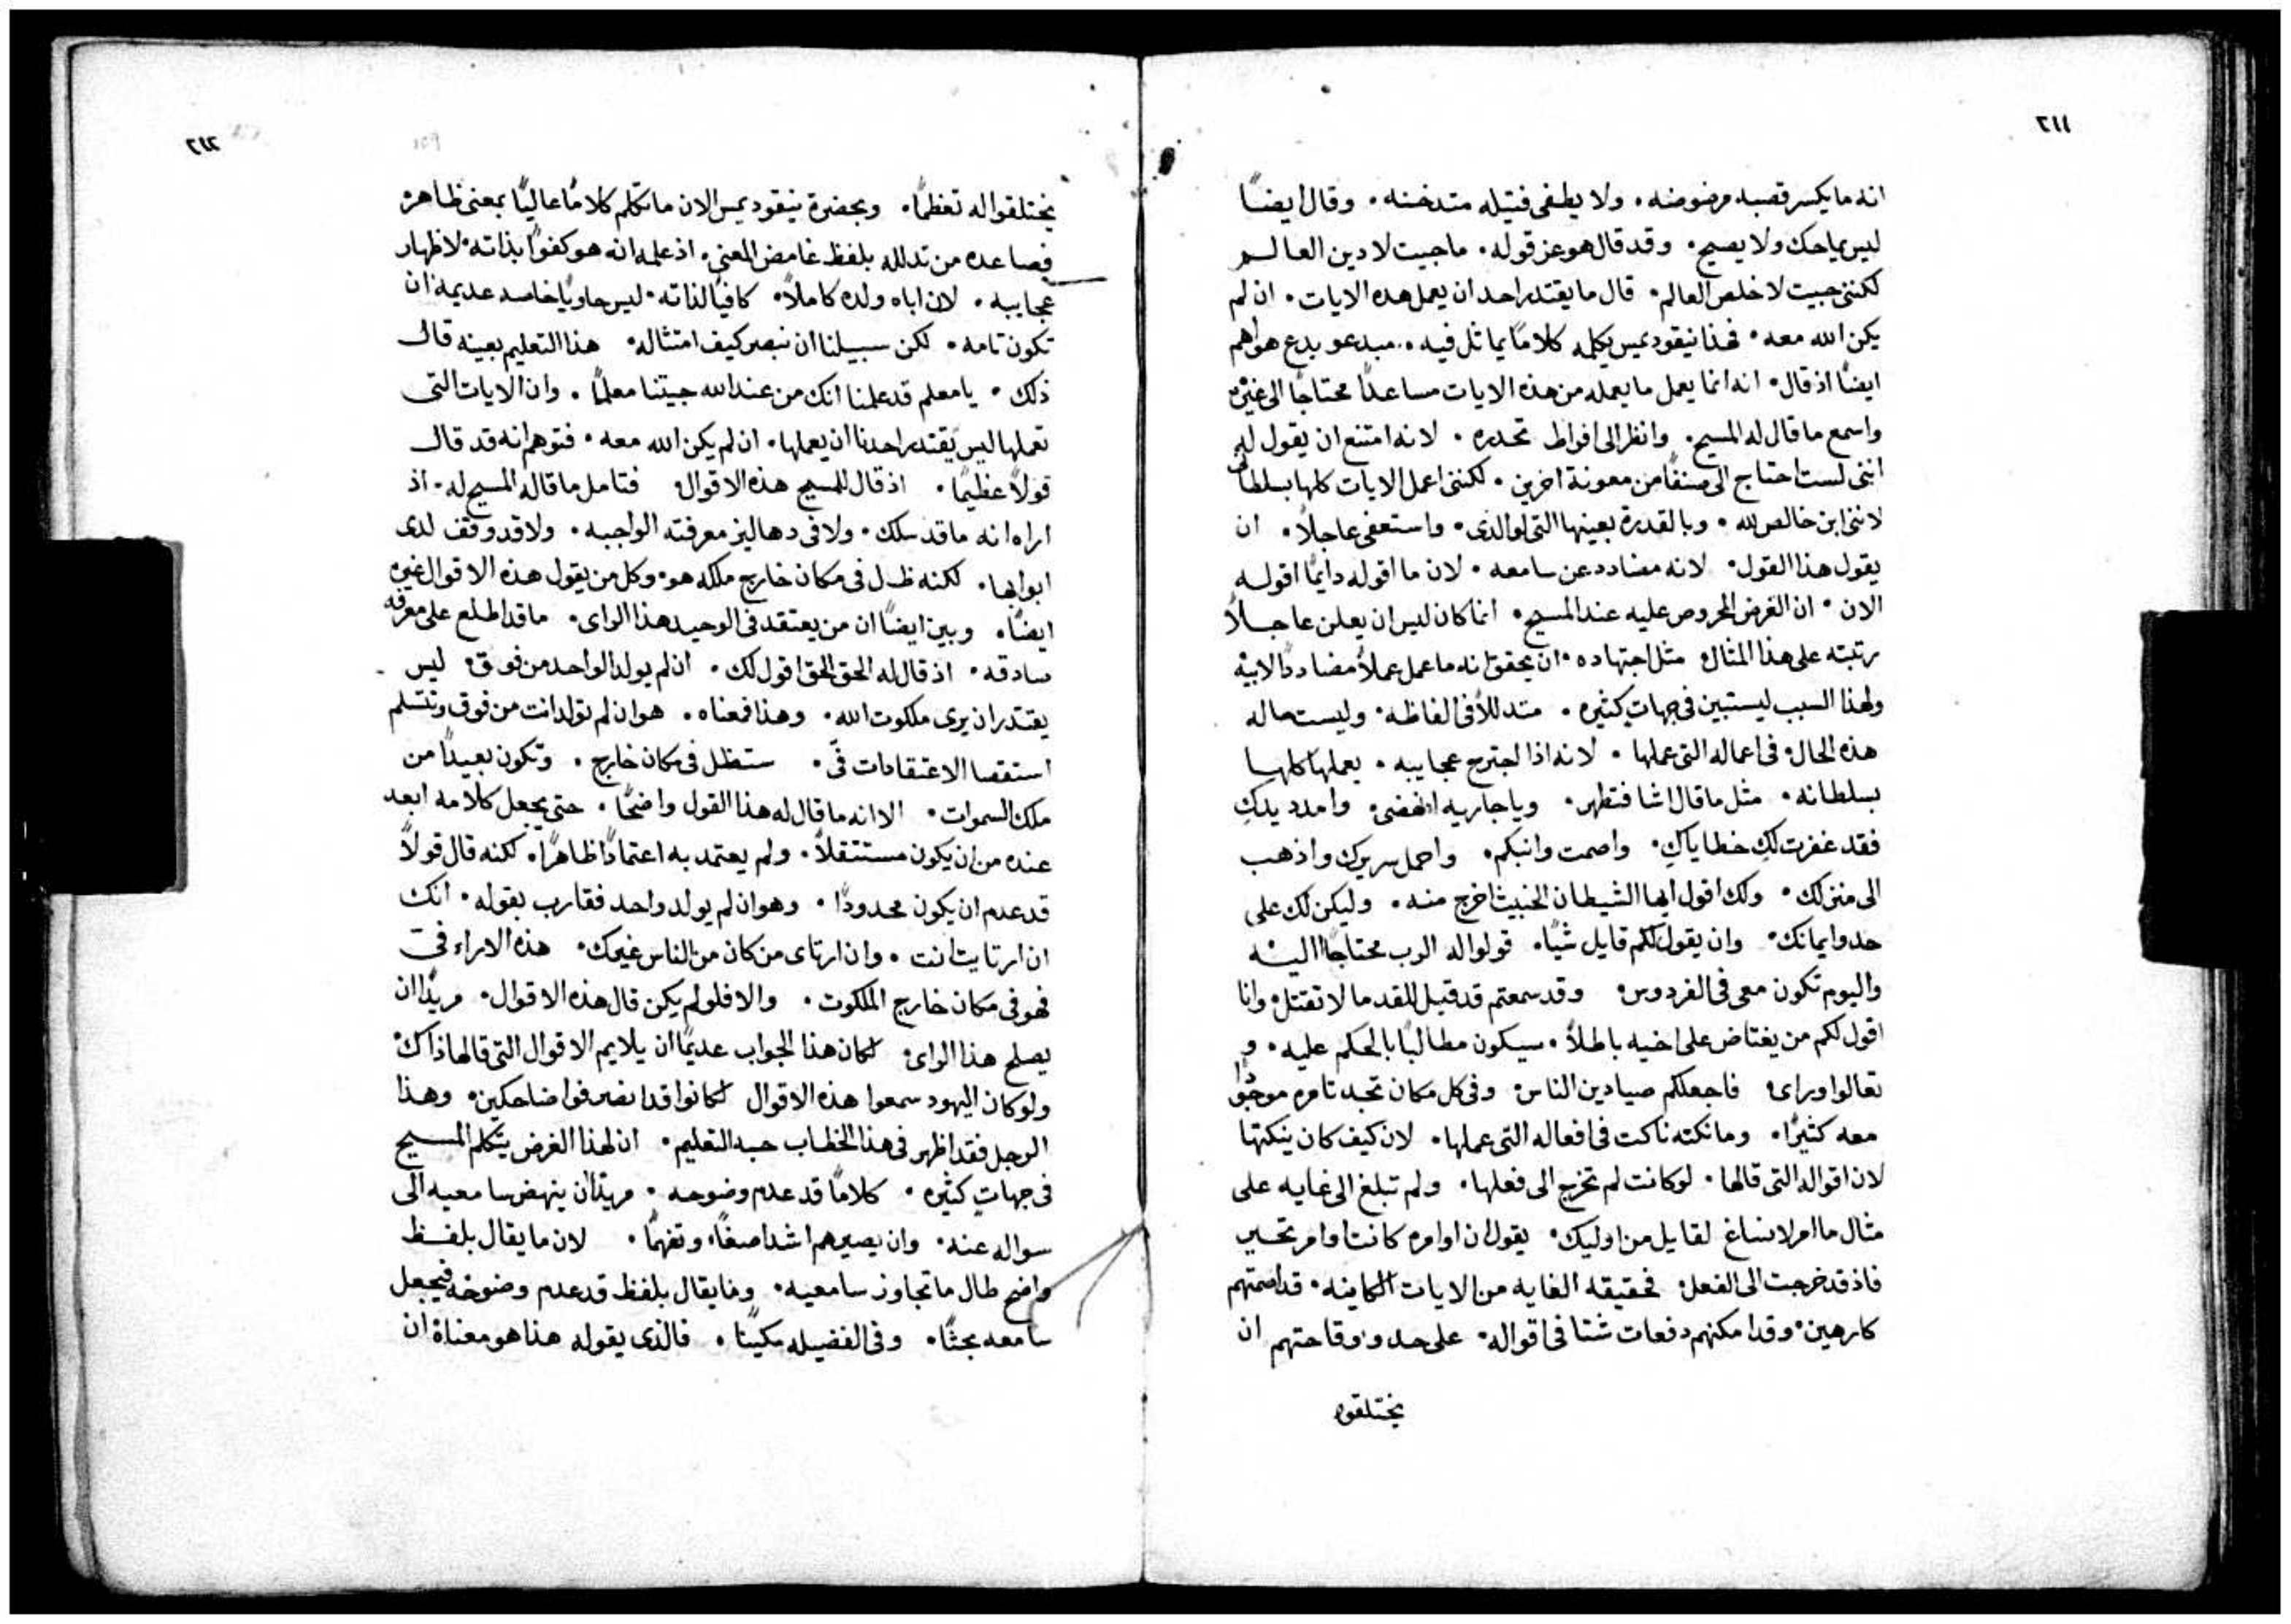 ٢١١
انه ما يكسر قصبه مرضوضه. ولا يطفى فتيله متدخنه. وقال ايضاً
ليس يماحك ولا يصيح. وقد قال هو عز قوله. ماجيت لادين العالم
لكننى جيت لاخلص العالم. قال ما يقتدر احد ان يعمل هذه الايات. ان لم
يكن الله معه. فهذا نيقوديمس يكلمه كلاماً يماثل فيه. مبدعو بدع هواهم
ايضاً اذ قال. انه انما يعمل ما يعمله من هذه الايات مساعداً محتاجاً الى غيره
واسمع ما قال له المسيح. وانظر الى افراط تحدره. لانه امتنع ان يقول له
اننى لست احتاج الى صنفاً من معونة اخرين. لكننى اعمل الايات كلها بسلطان
لاننى ابن خالص لله. وبالقدرة بعينها التى لوالدى. واستعفى عاجلاً. ان
يقول هذا القول. لانه مضادد عن سامعه. لان ما اقوله دايماً اقوله
الان. ان الغرض المحروص عليه عند المسيح. انما كان ليس ان يعلن عاجلاً
رتبته على هذا المثال مثل اجتهاده. ان يحقق انه ما عمل عملاً مضاددًا لابيه
ولهذا السبب ليستبين فى جهاتٍ كثيره. متدللاً فى الفاظه. وليست ماله
هذه الحال فى اعماله التى عملها. لانه اذا اجترح عجايبه. يعملها كلها
بسلطانه. مثل ما قال اشا فتطهر. ويا جاريه انهضى. وامدد يدك
فقد غفرت لكِ خطاياكِ. واصمت وانبكم. واحمل سريرك واذهب
الى منزلك. ولك اقول ايها الشيطان الخبيث اخرج منه. وليكن لك على
حدو ايمانك. وان يقول لكم قايل شيًا. قولوا له الرب محتاجًا اليه
واليوم تكون معى فى الفردوس. وقد سمعتم قد قيل للقدما لا تقتل وانا
اقول لكم من يغتاض على اخيه باطلاً. سيكون مطالبًا بالحكم عليه. و
تعالوا وراى فاجعلكم صيادين الناس. وفى كل مكان نجد تامره موجودًا
معه كثيرًا. وما نكته ناكت فى افعاله التى عملها. لان كيف كان ينكتها
لان اقواله التى قالها. لو كانت لم تخرج الى فعلها. ولم تبلغ الى غايه على
مثال ما امر لانساغ لقايل من اوليك. يقول ان اوامره كانت اوامر تحسر
فاذ قد خرجت الى الفعل فحقيقه الغايه من الايات الكاينه. قد اصمتهم
كارهين. وقد امكنهم دفعات شتا فى اقواله. على حدو وقاحتهم ان
يختلقوا
٢١٢
يختلقوا له تعظمًا. وبحضرة نيقوديمس الان ما تكلم كلامًا عاليًا بمعنى ظاهره
فصاعده من تدلله بلفظ غامض المعنى. اذ علمه انه هو كفوًا بذاته. لاظهار
عجايبه. لان اباه ولده كاملاً. كافيًا لذاته. ليس حاويًا خاصه عديمه ان
تكون تامه. لكن سبيلنا ان نبصر كيف امتثاله. هذا التعليم بعينه قال
ذلك. يا معلم قد علمنا انك من عند الله جيتنا معلمًا. وان الايات التى
تعملها ليس يقتدر احدنا ان يعملها. ان لم يكن الله معه. فتوهم انه قد قال
قولاً عظيمًا. اذ قال للمسيح هذه الاقوال فتامل ما قاله المسيح له. اذ
اراه انه ما قد سلك. ولا فى دهاليز معرفته الواجبه. ولا قد وقف لدى
ابوابها. لكنه ظل فى مكان خارج ملكه هو. وكل من يقول هذه الاقوال غيره
ايضًا. وبين ايضًا ان من يعتقد فى الوحيد هذا الراى. ما قد اطلع على معرفه
صادقه. اذ قال له الحق الحق اقول لك. ان لم يولد الواحد من فوق ليس
يقتدر ان يرى ملكوت الله. وهذا فمعناه. هو ان لم تولد انت من فوق وتتسلم
استقصا الاعتقادات فى. ستظل فى مكان خارج. وتكون بعيدًا من
ملك السموات. الا انه ما قال له هذا القول واضحًا. حتى يجعل كلامه ابعد
عنده من ان يكون مستثقلاً. ولم يعتمد به اعتمادًا ظاهرًا. لكنه قال قولاً
قد عدم ان يكون محدودًا. وهو ان لم يولد واحد فقارب بقوله. انك
ان ارتايت انت. وان ارتاى من كان من الناس غيرك. هذه الاراء فى
فهو فى مكان خارج الملكوت. والا فلو لم يكن قال هذه الاقوال. مريدًا ان
يصلح هذا الراى لكان هذا الجواب عديمًا ان يلايم الاقوال التى قالها ذاك
ولو كان اليهود سمعوا هذه الاقوال لكانوا قد انصرفوا ضاحكين. وهذا
الرجل فقد اظهر فى هذا الخطاب حبه التعليم. ان لهذا الغرض يتكلم المسيح
فى جهاتٍ كثيره. كلامًا قد عدم وضوحه. مريدًا ان ينهض سامعيه الى
سواله عنه. وان يصيرهم اشد اصغًا وتفهمًا. لان ما يقال بلفظ
واضح طال ما تجاوز سامعيه. وما يقال بلفظ قد عدم وضوحه فيجعل
سامعه بحثًا. وفى الفضيله مكينًا. فالذى يقوله هذا هو معناه ان